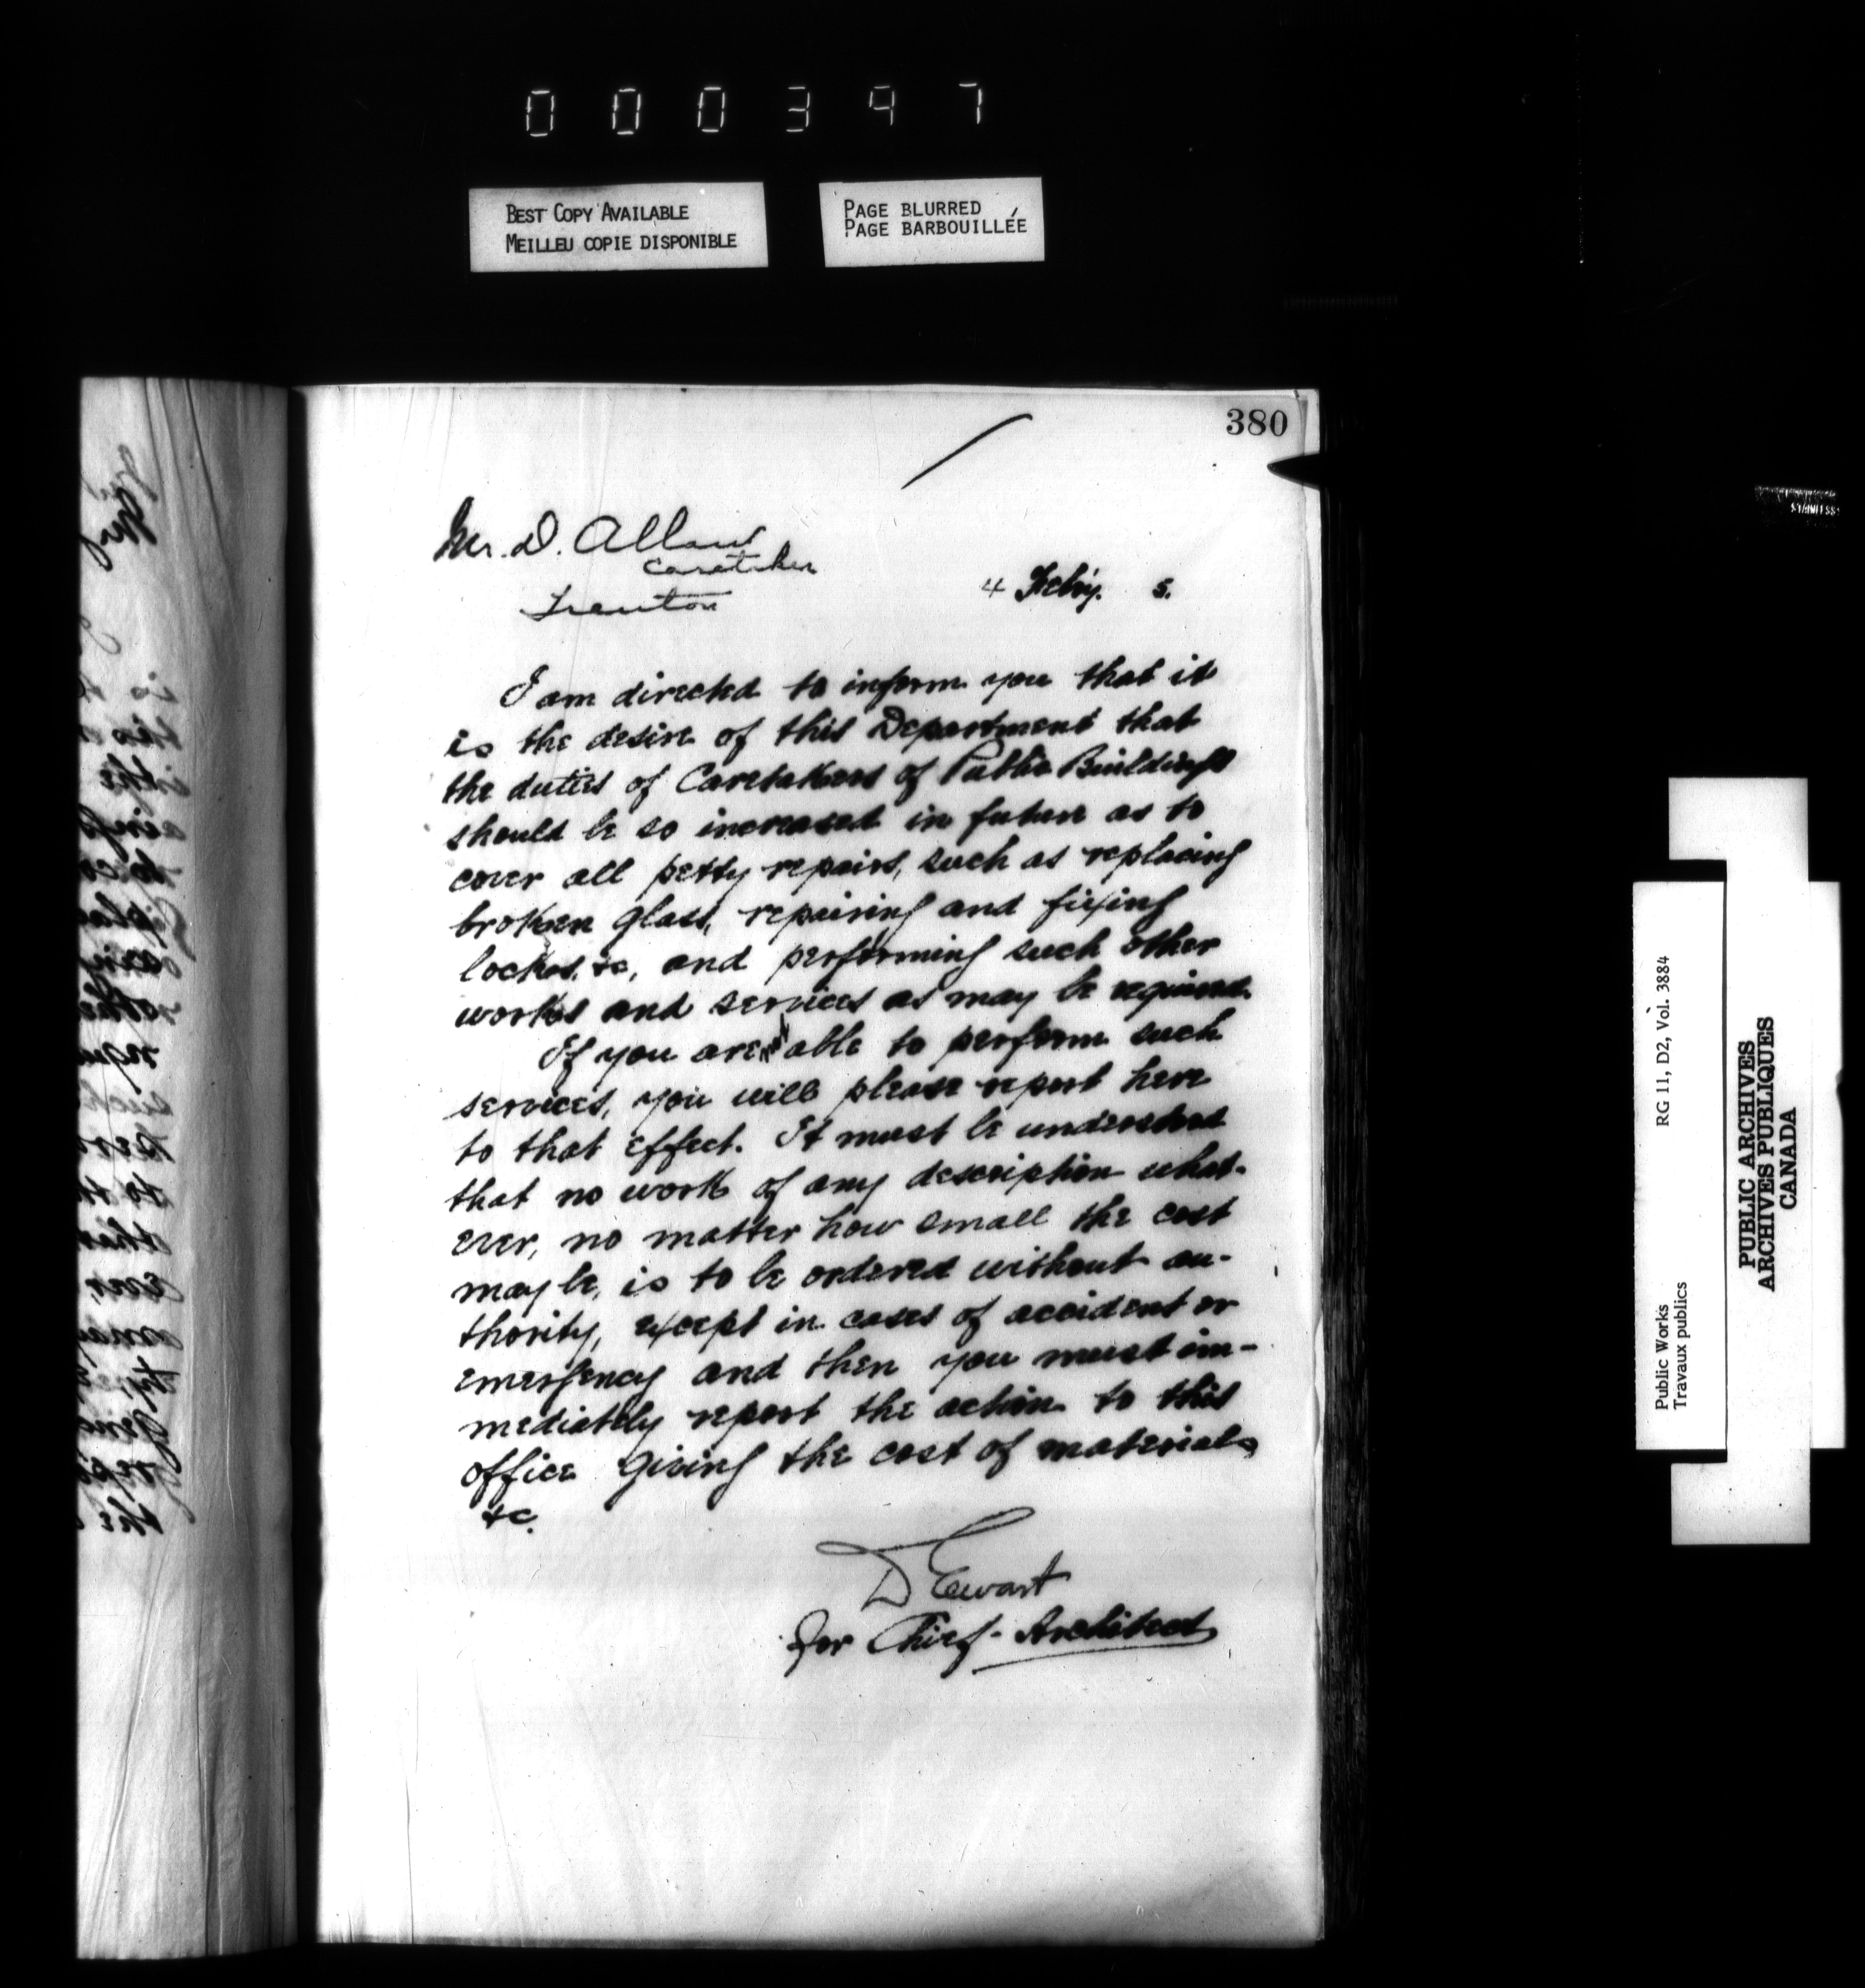 000397
BEST COPY AVAILABLE
MEILLEU COPIE DISPONIBLE
PAGE BLURRED
PAGE BARBOUILLÉE
380
Mr. D. Allan
Caretaker
Trenton
4 Feb'y. 5.
I am directed to inform you that it
is the desire of this Department that
the duties of Caretakers of Public Buildings
should be so increased in future as to
cover all petty repairs, such as replacing
broken glass, repairing and fixing
lockes, &c, and performing such other
works and services as may be required.
If you are not able to perform such
services, you will please report here
to that effect. It must be understood
that no work of any description what-
ever, no matter how small the cost
may be, is to be ordered without au-
thority, except in cases of accident or
emergency and then you must im-
mediately report the action to this
office giving the cost of materials
&c.
D Ewart
for Chief Architect
Public Works
Travaux publics
RG 11, D2, Vol. 3884
PUBLIC ARCHIVES
ARCHIVES PUBLIQUES
CANADA